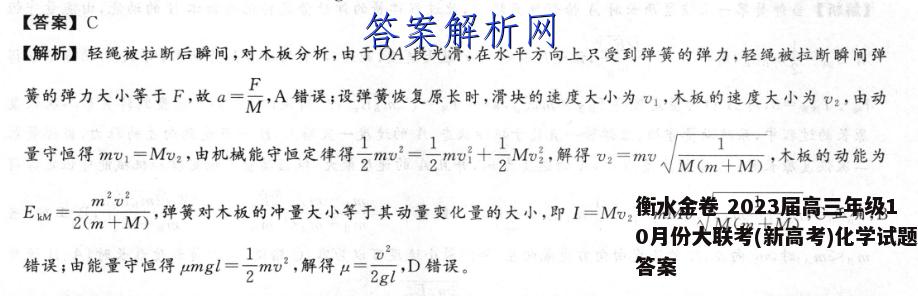 【答案】C
答案解析网
【解析】轻绳被拉断后瞬间,对木板分析,由于OA段光滑,在水平方向上只受到弹簧的弹力,轻绳被拉断瞬间弹
簧的弹力大小等于F,故a=F/M,A错误;设弹簧恢复原长时,滑块的速度大小为v₁,木板的速度大小为v₂,由动
量守恒得mv₁=Mv₂,由机械能守恒定律得1/2mv²=1/2mv₁²+1/2Mv₂²,解得v₂=mv√(1/(M(m+M))),木板的动能为
E_kM=m²v²/(2(m+M)),弹簧对木板的冲量大小等于其动量变化量的大小,即I=Mv₂
错误;由能量守恒得μmgl=1/2mv²,解得μ=v²/(2gl),D错误。
衡水金卷 2023届高三年级1
0月份大联考(新高考)化学试题
答案